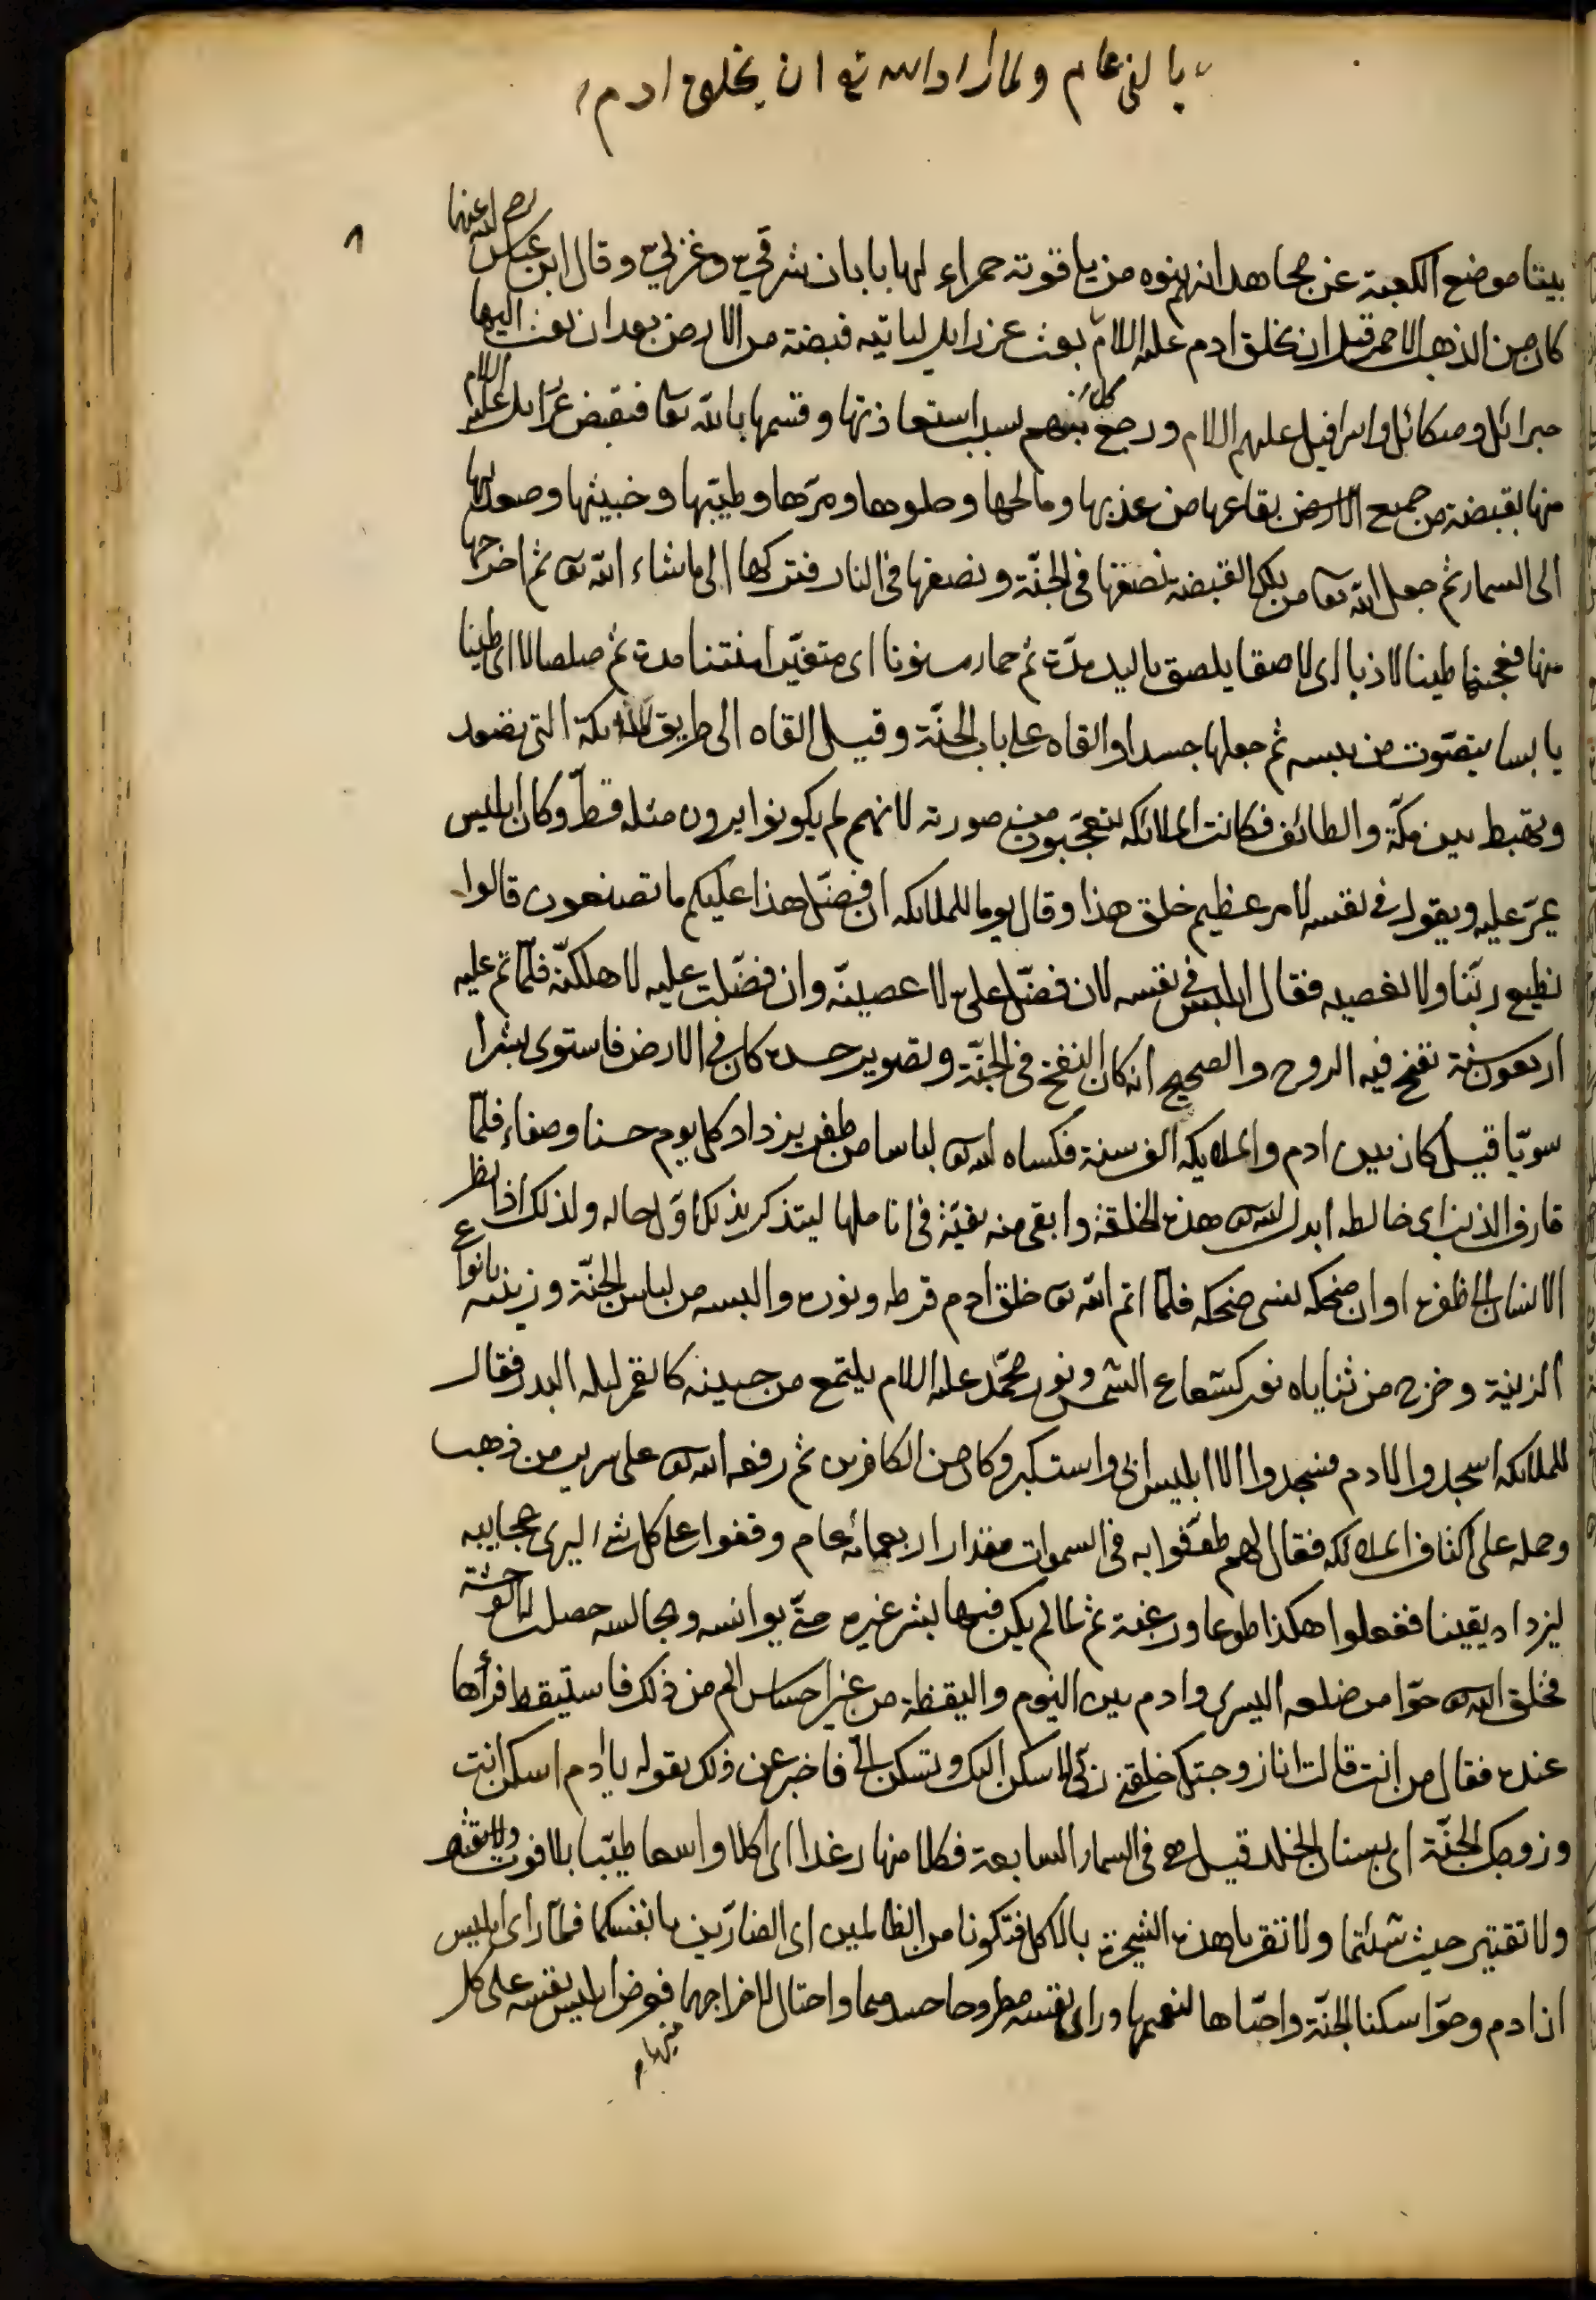 بالفى عام ولما اراد الله تع ان يخلق ادم
بيتا موضع الكعبة عن مجاهد انهم بنوه من ياقوتة حمراء لها بابان شرقي وغربي وقال ابن عباس رضي الله عنهما
كان من الذهب الاحمر قبل ان يخلق ادم عليه السلام بعث عزرايل لياتيه قبضة من الارض بعد ان بعث اليها
جبرائل وميكائل واسرافيل عليهم السلام ورجع كل منهم بسبب استعاذتها وقسمها بالله تعا فقبض عزرايل عليه السلام
منها بقبضة من جميع الارض بقاعها من عذبها ومالحها وحلوها ومرّها وطيّبها وخبيثها وصعد بها
الى السماء ثم جعل الله تعا من تلك القبضة نصفها في الجنّة ونصفها في النار فتركها الى ما شاء الله تعا ثم اخرجها
منها فعجنها طينا لازبا اى لاصقا يلصق باليد مدّة ثم حماء مسنونا اى متغيّرا منتنا مدة ثم صلصالا اى طينا
يابسا يتصوّت من يبسه ثم جعلها جسدا والقاه على باب الجنّة وقيل القاه الى طريق الملائكة التى تصعد
وتهبط بين مكّة والطائف فكانت الملائكه يتعجّبون من صورته لانهم لم يكونوا يرون مثله قطّ وكان ابليس
يمرّ عليه ويقول في نفسه لامر عظيم خلق هذا وقال يوما للملائكه ان فضّل هذا عليكم ما تصنعون قالوا
نطيع ربّنا ولا نعصيه فقال ابليس في نفسه لان فضّل علىّ لاعصينّه وان فضّلت عليه لاهلكنّه فلمّا تم عليه
اربعون سنة نفخ فيه الروح والصحيح انه كان النفخ في الجنّة وتصوير جسده كان في الارض فاستوى بشرا
سويّا قيل كان بين ادم والملائكه الف سنة فكساه الله تعا لباسا من ظفر يزداد كل يوم حسنا وصفاء فلمّا
قارف الذنب اى خالطه ابدل الله تعا هذه الخلقة وابقى منه بقيّة في اناملها ليتذكر بذلك اوّل حاله ولذلك اذا نظر
الانسان الى ظفره اوان ضحكه نسى ضحكه فلمّا اتم الله تعا خلق ادم قرطه ونوره والبسه من لباس الجنّة وزينه بانواع
الزينة وخرج من ثناياه نور كشعاع الشمس ونور محمّد عليه السلام يلتمع من جبينه كالقمر ليلة البدر فقال
للملائكه اسجدوا لادم فسجدوا الا ابليس ابى واستكبر وكان من الكافرين ثم رفعه الله تعا على سرير من ذهب
وحمله على اكتاف الملائكه فقال لهم طوّفوا به في السموات مقدار اربعمائه عام وقفوا على كل شئ ليرى عجايبه
ليزداد يقينا ففعلوا هكذا طوعا ورغبة ثم لما لم يكن فيها بشر غيره حتى يوانسه ويجالسه حصل له الوحشة
فخلق الله تعا حوّا من ضلعه اليسرى وادم بين النوم واليقظة من غير احساس الم من ذلك فاستيقظ فرأها
عنده فقال من انت قالت انا زوجتك خلقنى ربّى لاسكن اليك وتسكن الىّ فاخبر عن ذلك بقوله يا ادم اسكن انت
وزوجك الجنّة اى بستان الخلد قيل هى في السماء السابعة فكلا منها رغدا اى اكلا واسعا طيّبا بلا فوت
ولا تقتير حيث شئتما ولا تقربا هذه الشجرة بالاكل فتكونا من الظالمين اى الضارّين بانفسكما فلمّا راى ابليس
ان ادم وحوّا سكنا الجنّة واحبّاها لنعيمها وراى نفسه مطروحا حسدهما واحتال لاخراجهما منها فعرض ابليس نفسه على كل